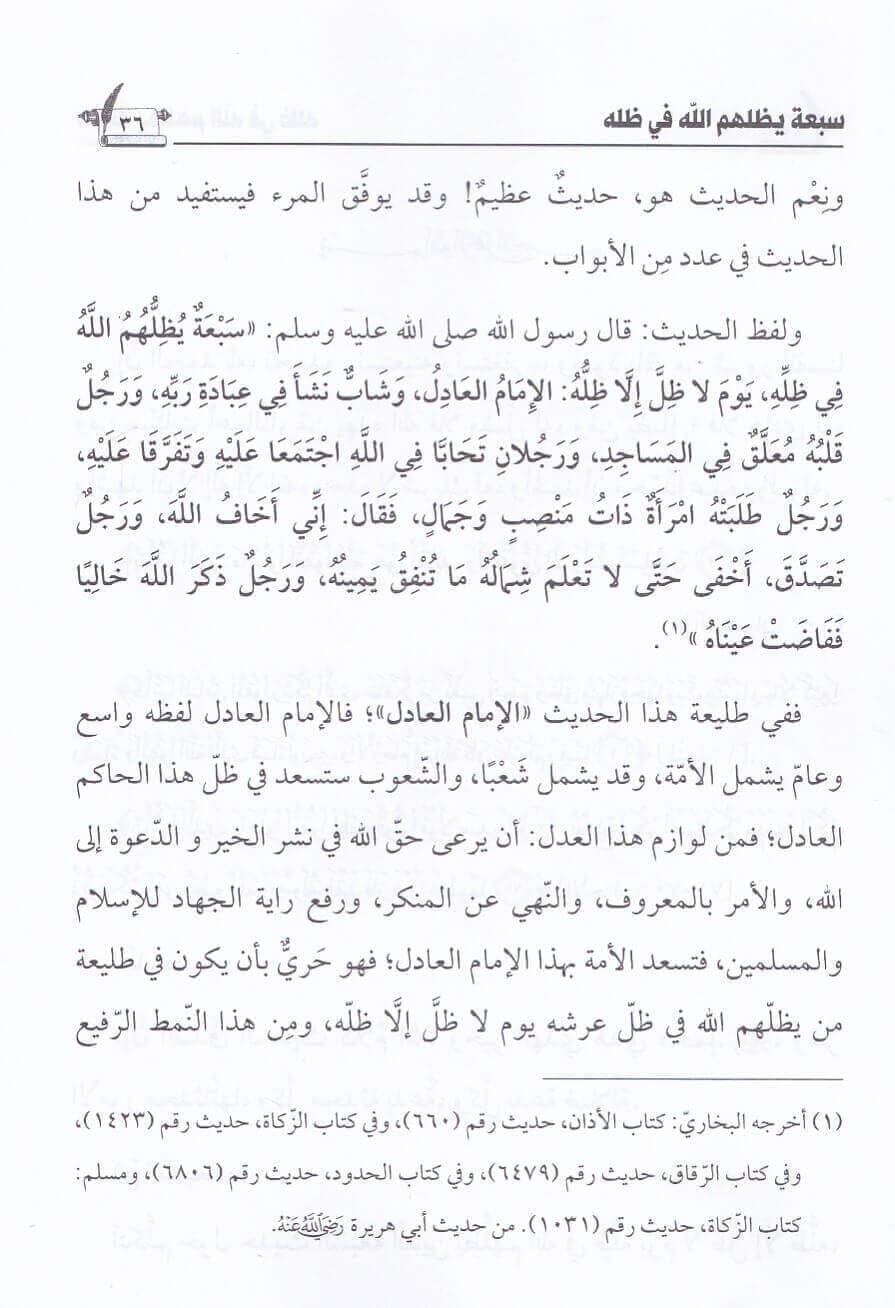 سبعة يظلهم الله في ظله
٣٦
ونِعْم الحديث هو، حديثٌ عظيمٌ! وقد يوفَّق المرء فيستفيد من هذا
الحديث في عدد مِن الأبواب.
ولفظ الحديث: قال رسول الله صلى الله عليه وسلم: «سَبْعَةٌ يُظِلُّهُمُ اللَّهُ
فِي ظِلِّهِ، يَوْمَ لا ظِلَّ إِلَّا ظِلُّهُ: الإِمَامُ العَادِلُ، وَشَابٌّ نَشَأَ فِي عِبَادَةِ رَبِّهِ، وَرَجُلٌ
قَلْبُهُ مُعَلَّقٌ فِي المَسَاجِدِ، وَرَجُلانِ تَحَابَّا فِي اللَّهِ اجْتَمَعَا عَلَيْهِ وَتَفَرَّقَا عَلَيْهِ،
وَرَجُلٌ طَلَبَتْهُ امْرَأَةٌ ذَاتُ مَنْصِبٍ وَجَمَالٍ، فَقَالَ: إِنِّي أَخَافُ اللَّهَ، وَرَجُلٌ
تَصَدَّقَ، أَخْفَى حَتَّى لا تَعْلَمَ شِمَالُهُ مَا تُنْفِقُ يَمِينُهُ، وَرَجُلٌ ذَكَرَ اللَّهَ خَالِيًا
فَفَاضَتْ عَيْنَاهُ»(١).
ففي طليعة هذا الحديث «الإمام العادل»؛ فالإمام العادل لفظه واسع
وعامّ يشمل الأمّة، وقد يشمل شَعْبًا، والشّعوب ستسعد في ظلّ هذا الحاكم
العادل؛ فمن لوازم هذا العدل: أن يرعى حقّ الله في نشر الخير و الدّعوة إلى
الله، والأمر بالمعروف، والنّهي عن المنكر، ورفع راية الجهاد للإسلام
والمسلمين، فتسعد الأمة بهذا الإمام العادل؛ فهو حَريٌّ بأن يكون في طليعة
من يظلّهم الله في ظلّ عرشه يوم لا ظلَّ إلَّا ظلّه، ومِن هذا النّمط الرّفيع
(١) أخرجه البخاريّ: كتاب الأذان، حديث رقم (٦٦٠)، وفي كتاب الزّكاة، حديث رقم (١٤٢٣)،
وفي كتاب الرّقاق، حديث رقم (٦٤٧٩)، وفي كتاب الحدود، حديث رقم (٦٨٠٦)، ومسلم:
كتاب الزّكاة، حديث رقم (١٠٣١). من حديث أبي هريرة رَضِيَ اللَّهُ عَنْهُ.